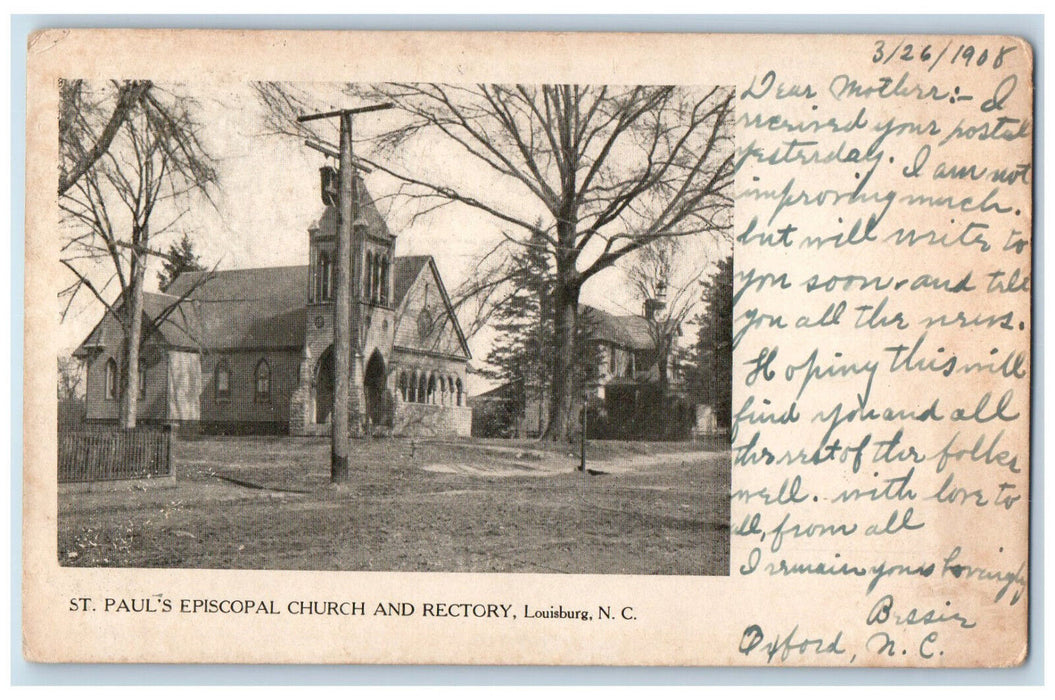 3/26/1908
Dear Mother:- I
received your postal
yesterday. I am not
improving much.
but will write to
you soon and tell
you all the news.
Hoping this will
find you and all
the rest of the folks
well. with love to
all, from all
I remain yours lovingly
Bessie
Oxford, N. C.
ST. PAUL'S EPISCOPAL CHURCH AND RECTORY, Louisburg, N. C.